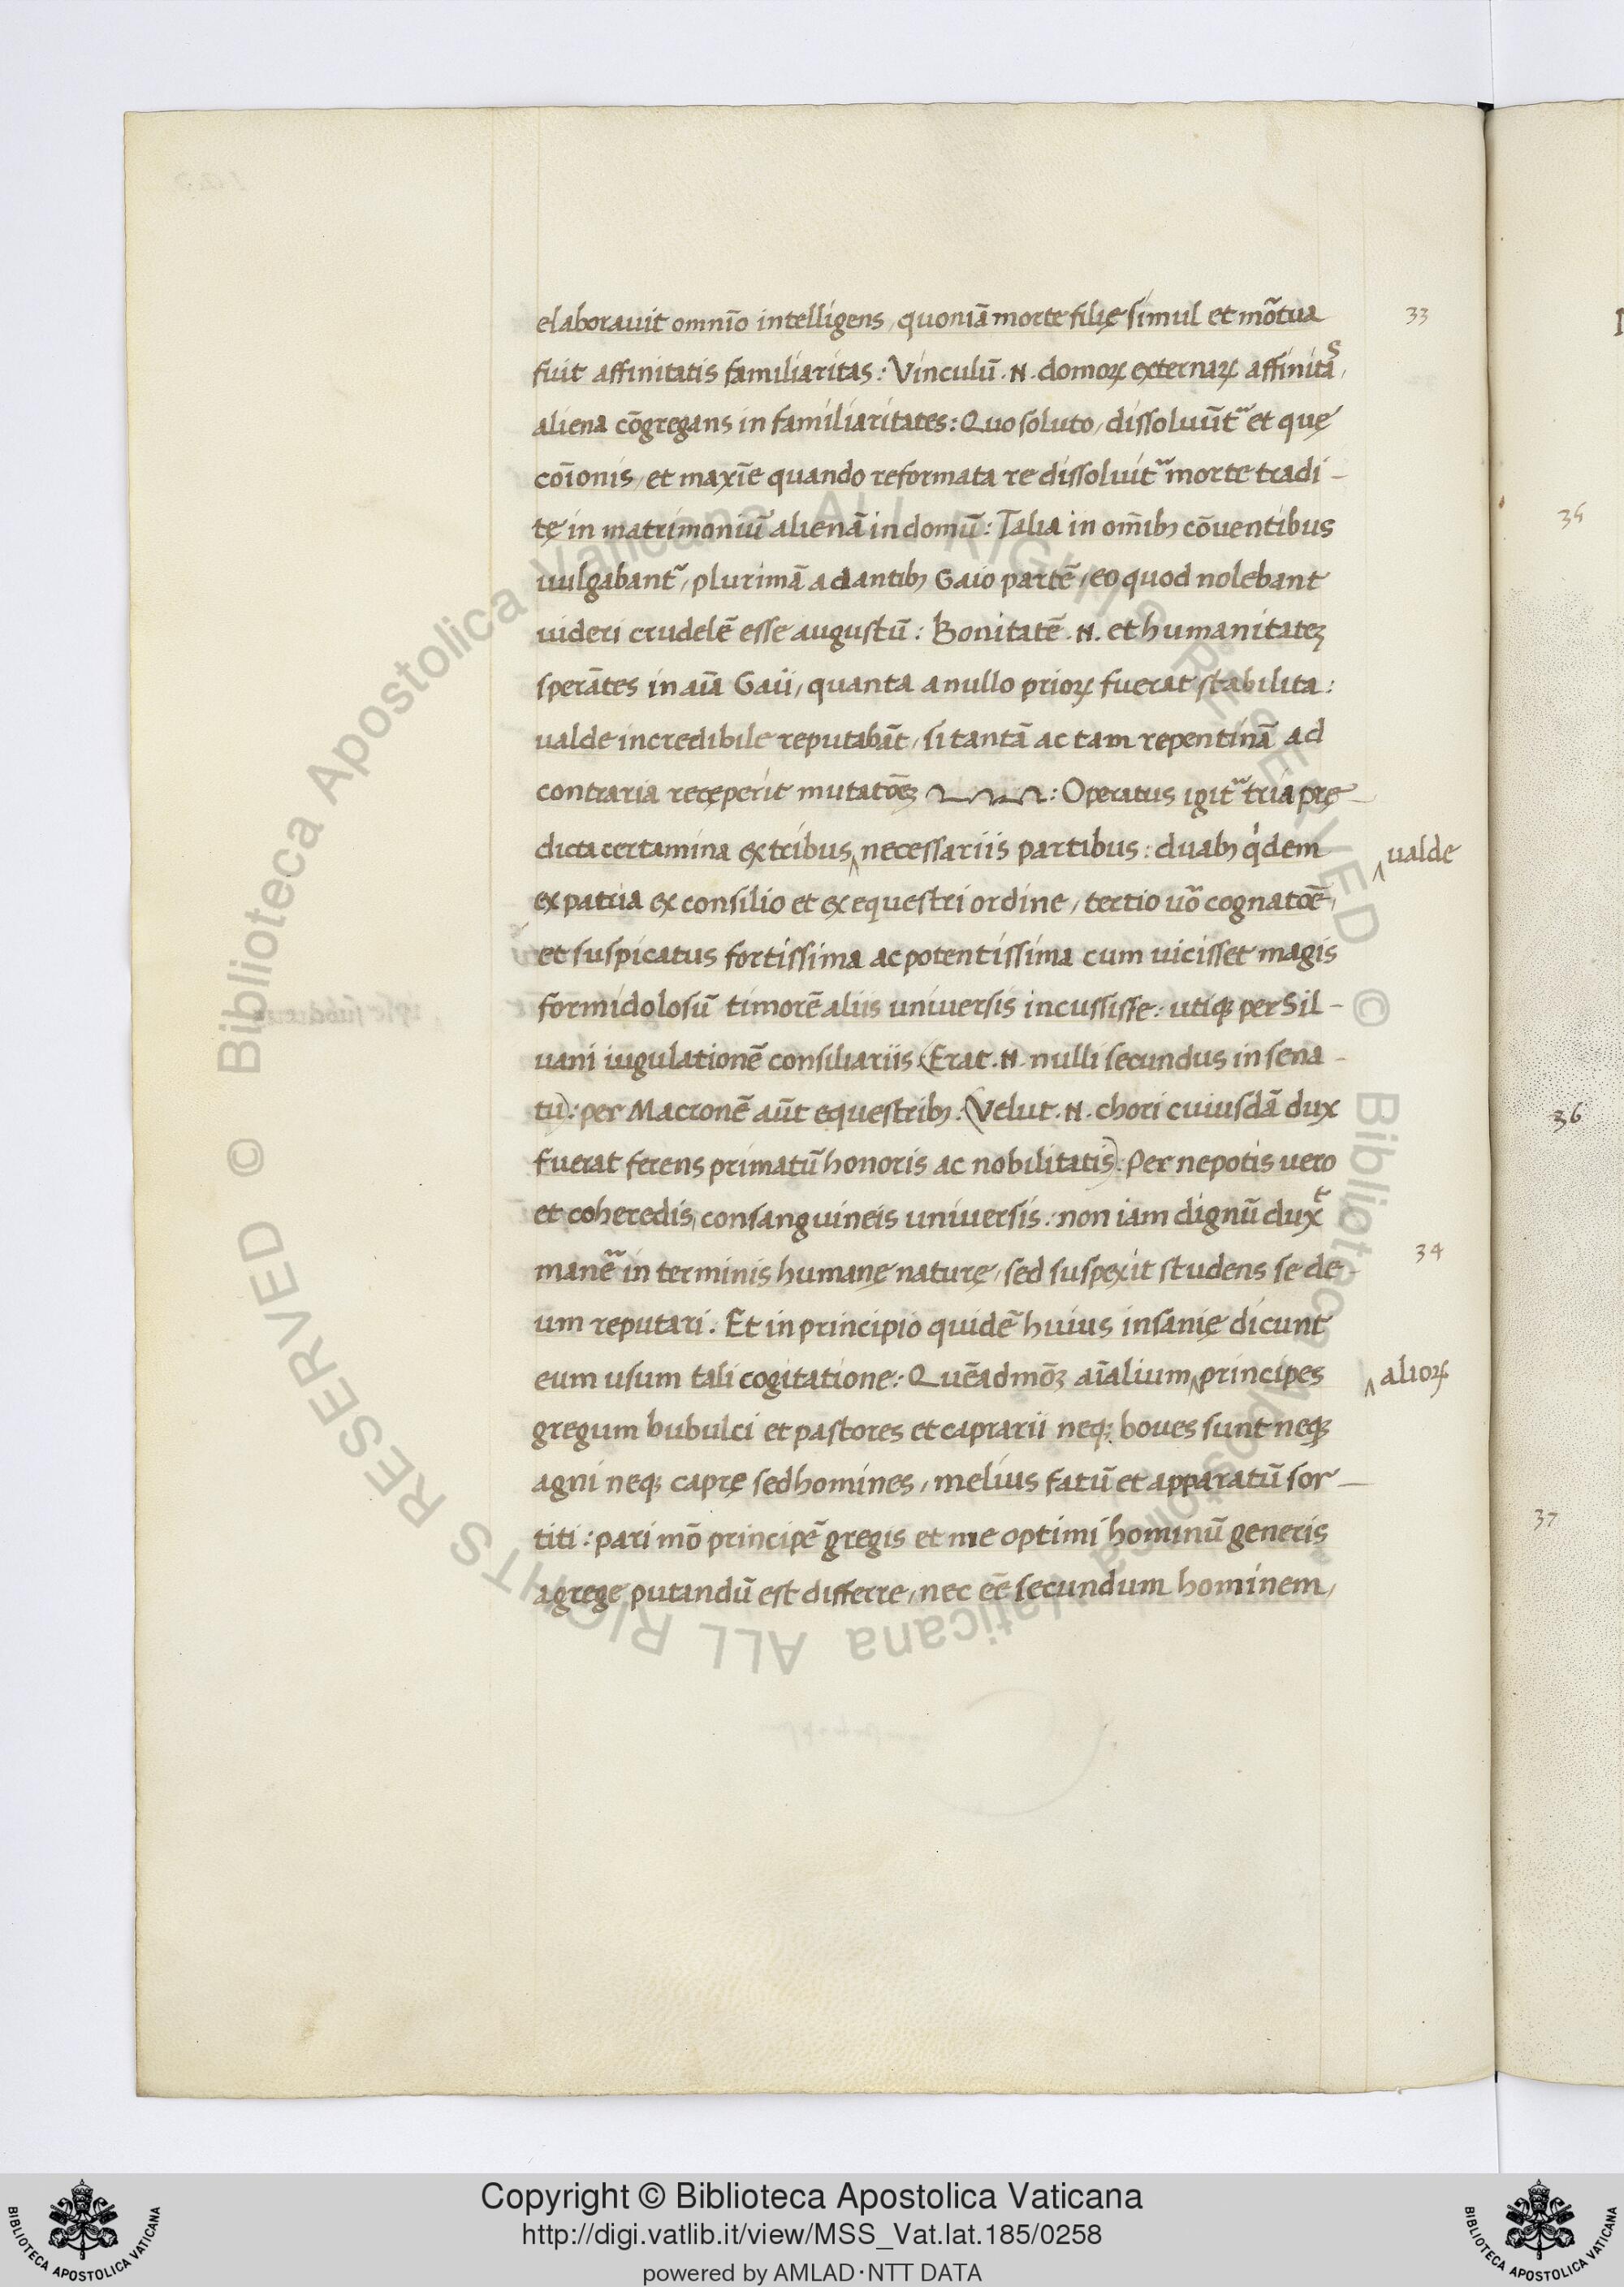 elaborauit omnīo intelligens, quoniā morte filię simul et mōtua 33
fuit affinitatis familiaritas: Vinculū .N. domoꝝ externaꝝ affinitaˢ,
aliena cōgregans in familiaritates: Quo soluto, dissoluūt᷑ et quę
coīonis, et maxīe quando reformata re dissoluit᷑ morte tradi-
tę in matrimoniū alienā in domū: Talia in om̄ibꝫ cōuentibus
uulgabant᷑, plurimā adantibꝫ Gaio partē, eo quod nolebant
uideri crudelē esse augustū: Bonitatē .N. et humanitateꝫ
sperātes in aīa Gaii, quanta a nullo prioꝝ fuerat stabilita:
ualde incredibile reputabāt, si tantā ac tam repentinā ad
contraria reçeperit mutatōeꝫ: Operatus igit᷑ tria prę-
dicta certamina ex tribus ‸ necessariis partibus: duabꝫ q'dem ‸ ualde
ex patria ex consilio et ex equestri ordine, tertio uō cognatōe,
et suspicatus fortissima ac potentissima cum uicisset magis
formidolosū timorē aliis uniuersis incussisse: utiqꝫ per Sil-
uani iugulationē consiliariis (Erat .N. nulli secundus in sena-
tu): per Macronē aūt equestribꝫ: (Velut .N. chori cuiusdā dux
fuerat ferens primatū honoris ac nobilitatis): Per nepotis uero
et coheredis, consanguineis uniuersis: non iam dignū duxᵗ
manē᷑ in terminis humanę naturę, sed suspexit studens se de- 34
um reputari. Et in principio quidē huius insanię dicunt
eum usum tali cogitatione: Quēadmōꝫ aīalium ‸ principes ‸ alioꝝ
gregum bubulci et pastores et caprarii neqꝫ boues sunt neqꝫ
agni neqꝫ caprę sed homines, melius fatū et apparatū sor-
titi: pari mō principē gregis et me optimi hominū generis
a grege putandū est differre, nec eē secundum hominem,
35
36
37
Copyright © Biblioteca Apostolica Vaticana
http://digi.vatlib.it/view/MSS_Vat.lat.185/0258
powered by AMLAD·NTT DATA
BIBLIOTECA APOSTOLICA VATICANA
BIBLIOTECA APOSTOLICA VATICANA
© Biblioteca Apostolica Vaticana ALL RIGHTS RESERVED © Biblioteca Apostolica Vaticana ALL RIGHTS RESERVED